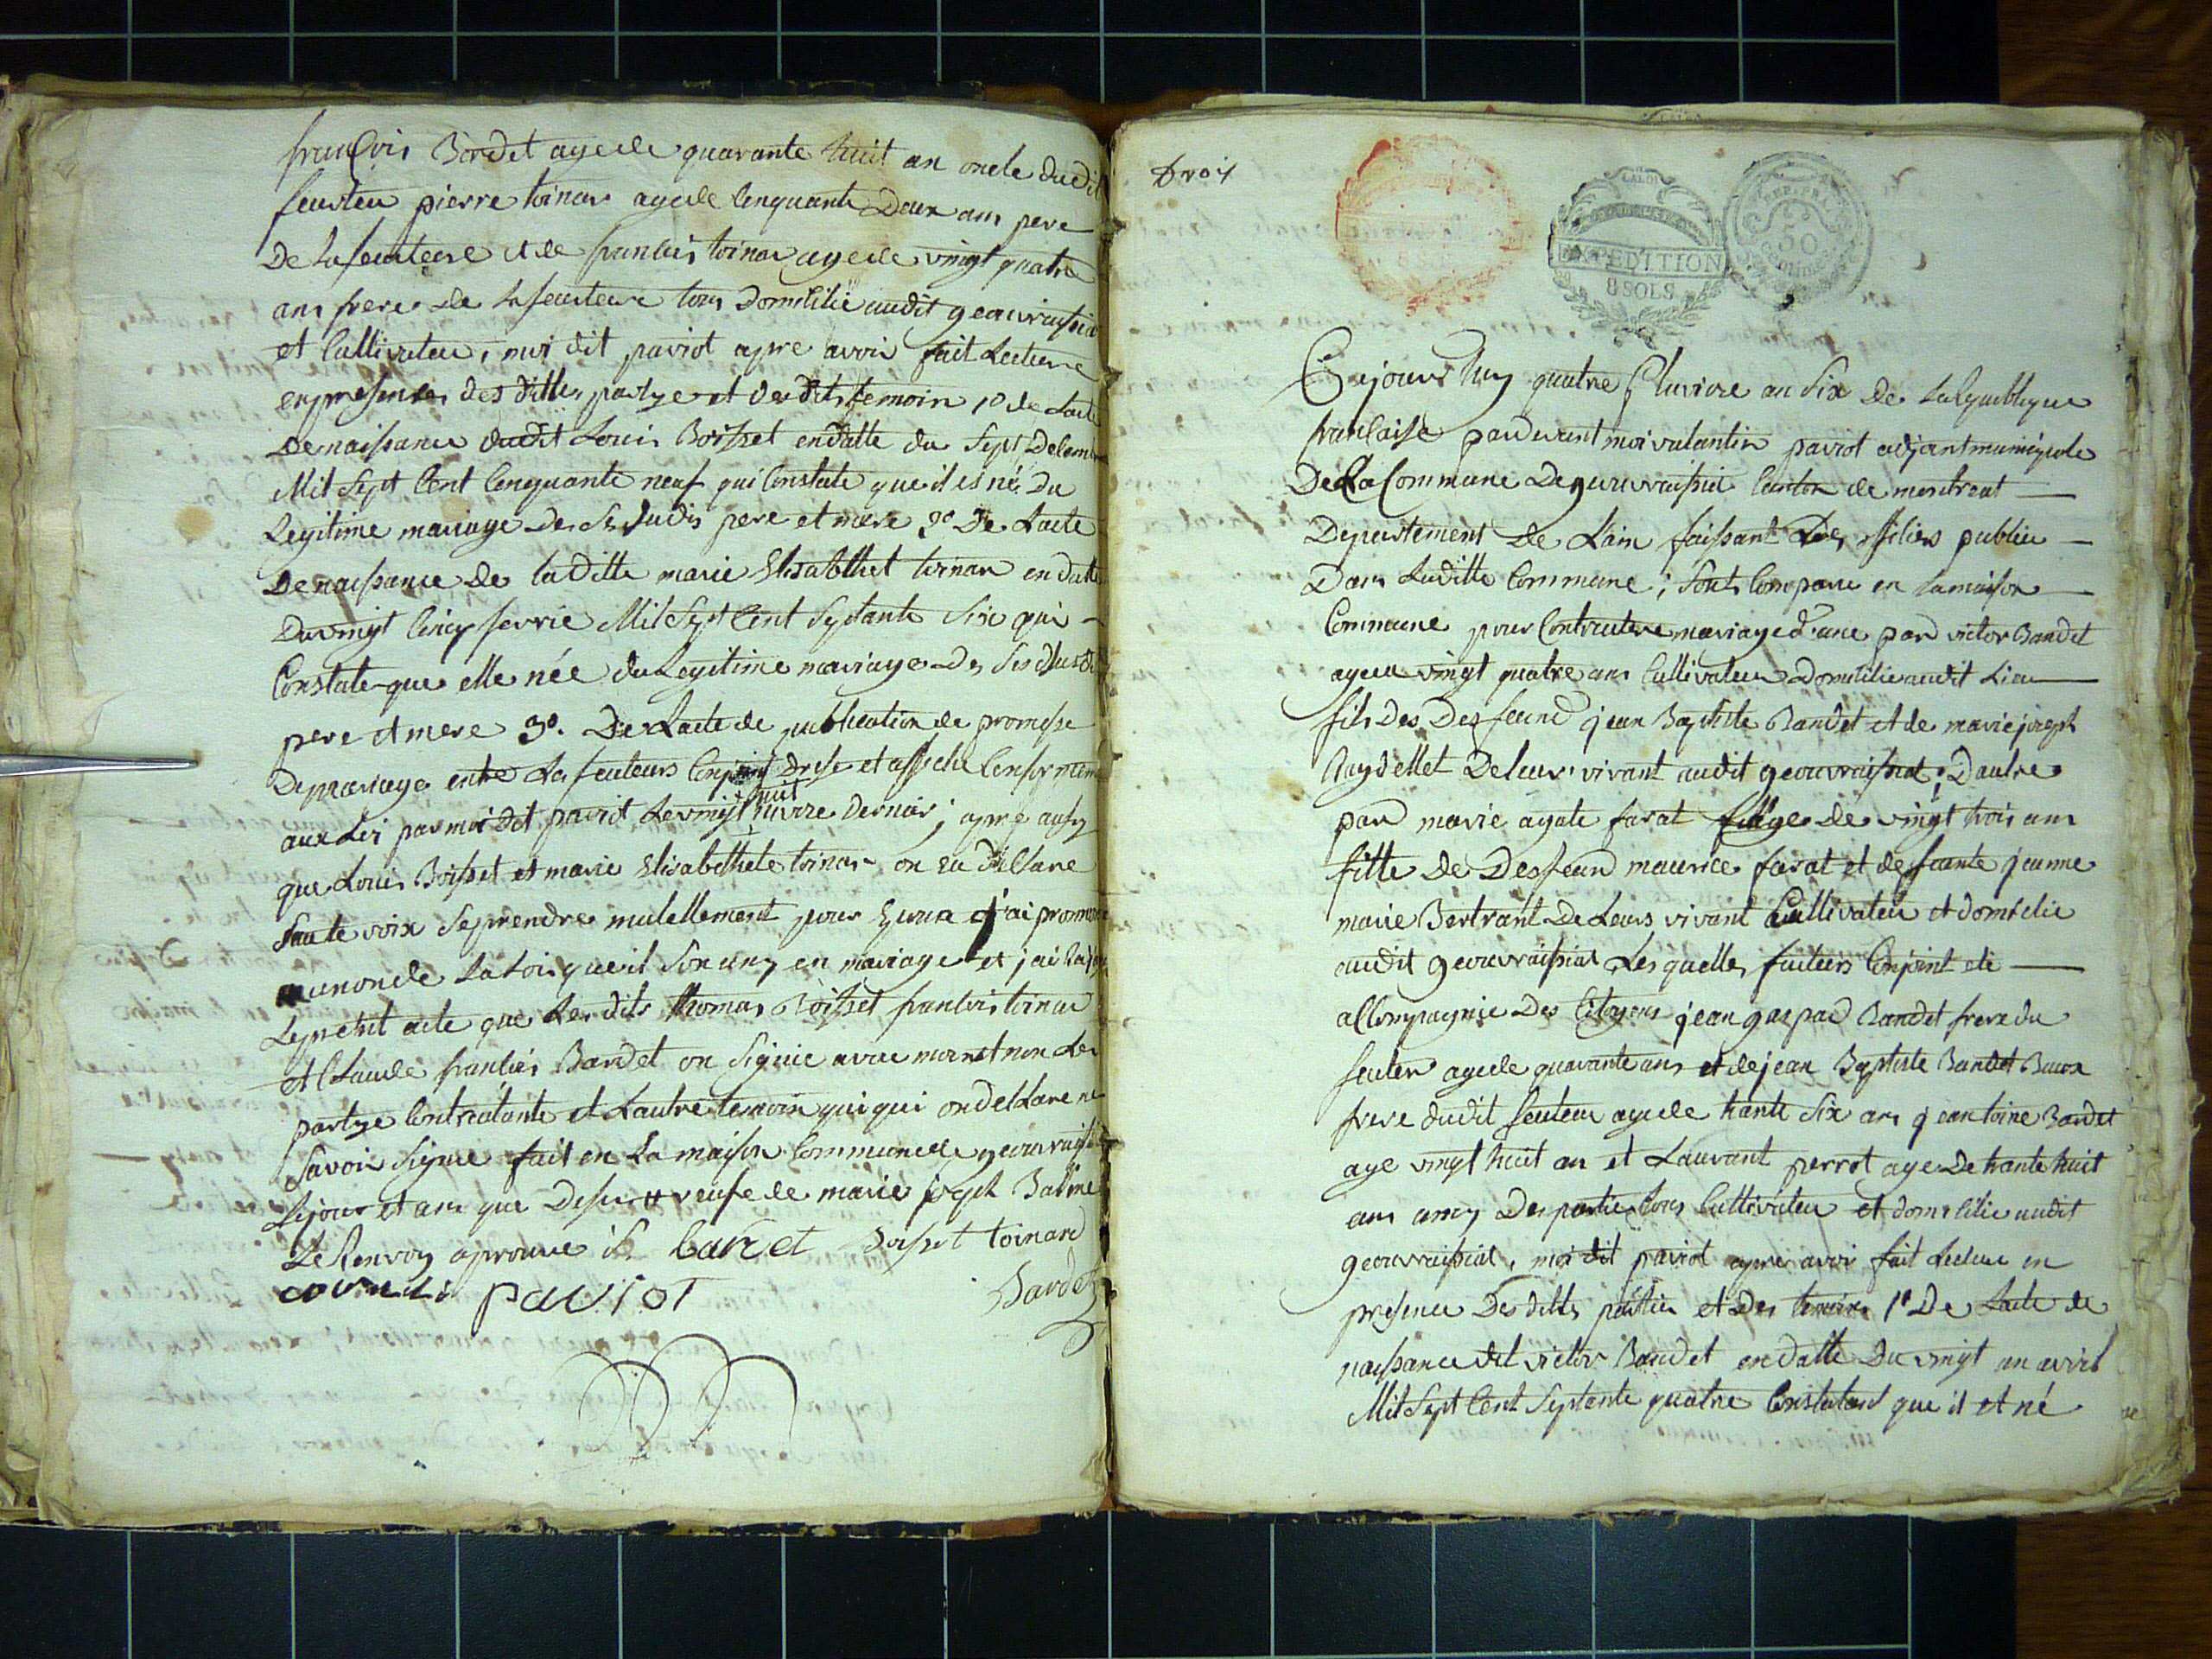 françois Bardet agé de quarante huit an oncle dudit
feuteu pierre toinar agé de cenquante Deux ans pere
De la feuteure et de francois toinar agé de vingt quatre
ans frere de la feuteure tous Domicilié audit geouvraissia
et Cultivateu, moi dit paviot apre avoir fait Lecture
en presences des dittes partye et des dits temoin 1º de Lacte
De naissance dudit Louis Boisset en datte du Sept Decembre
Mil Sept Cent Cenquante neuf qui Constate que il es né Du
Legitime mariage des Susdis pere et mere 2º De Lacte
De naissance de laditte marie Elisabthet toinar en datte
Du vingt Cinq fevrie Mil Sept Cent Septante Six qui
Constate que elle née du Legitime mariage Des Susdis
pere et mere 3º. De Lacte de publication de promesse
De mariage entre La feuteurs Conjoint Dresé et affiché Conformement
huit
aux Loi par moi dit paviot Le vingt nivoze dernier ; apre aussy
que Louis Boisset et marie Elisabethete toinar on eu declare
haute voix Se prendre mutellement pour Epoux j'ai prononcé
au non de La Loi que il Son uny en mariage et j'ai
Le present acte que Les dits thomas Boisset francois toinar
et Claude francois Bardet on Signié avec moi et non Les
partye Contractante et Lautre temoin qui qui on declare ne
Savoir Signié fait en La maison Commune de geouvraissia
Le jour et ans que Desu # veufe de marie joseph Balme
Le Renvoy aprouvé Bardet Boisset toinard
paviot Bardet
troy
EXPEDITION
8 SOLS
REP. FRA.
50
Centimes
Cejourd'huy quatre pluviose an Six De La Republique
francaise pardevant moi valantin paviot adjoint municipale
De La Commune De geouvraissiat Canton de montreal
Departement De Lain faissant Les officiers publiue
Dans Laditte Commune ; Sont Comparu en La maison
Commune pour Contracter mariage d'une par victor Bandet
agé vingt quatre ans Cultivateu Domicilié audit Lieu
fils Des Desfeund jean Baptiste Bandet et de marie joseph
Ruydellet De leur vivant audit geouvraissiat ; D autre
par marie agate farat fille agé de vingt trois ans
fille De Desfeund maurice farat et desfeunte jeanne
marie Bertrant De Leurs vivant Cultivateu et domicilie
audit geouvraissiat Les quelles futeurs Conjoint été
accompagnié Des Citoyens jean gaspad Bandet frere du
feuteu agé de quarante ans et de jean Baptiste Bandet
frere dudit feuteu agé de trante Six ans jeantoine Bardet
agé vingt huit an et Lauvant perrot agé De trante huit
ans amy Des partie tous Cultivateu et domicilié audit
geouvraissiat, moi dit paviot apre avoi fait Lecture en
presence Des dittes partier et Des temoin 1º De Lacte de
naissance del victor Bandet en datte Du vingt un avril
Mil Sept Cent Septente quatre Constatant que il et né